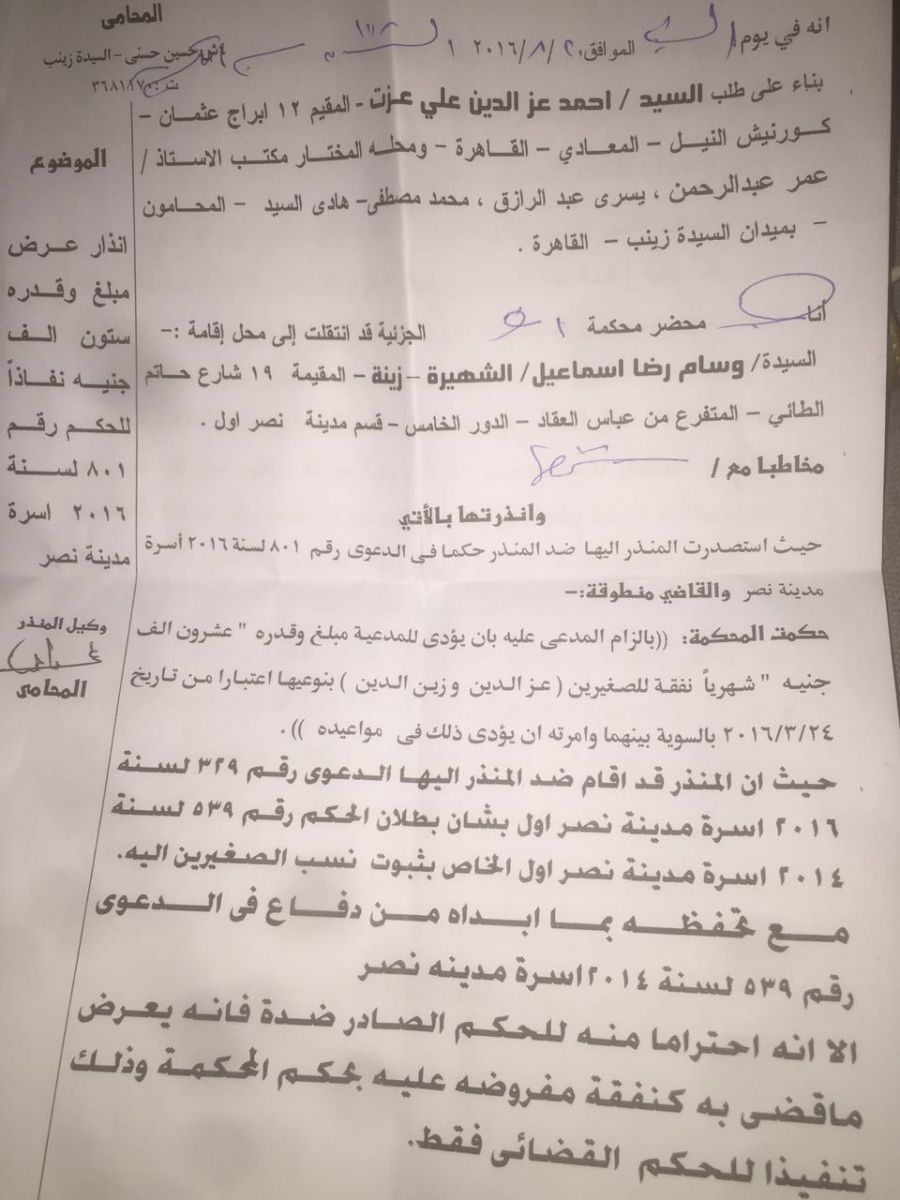 المحامى
٤ش حسين حسنى - السيدة زينب
الموضوع
انذار عرض
مبلغ وقدره
ستون الف
جنيه نفاذاً
للحكم رقم
٨٠١ لسنة
٢٠١٦ اسرة
مدينة نصر
وكيل المنذر
المحامى
انه في يوم السبت الموافق ٢٠/٨/٢٠١٦
بناء على طلب السيد / احمد عز الدين علي عزت - المقيم ١٢ ابراج عثمان -
كورنيش النيل - المعادي - القاهرة - ومحله المختار مكتب الاستاذ /
عمر عبدالرحمن ، يسرى عبد الرازق ، محمد مصطفى- هادى السيد - المحامون
- بميدان السيدة زينب - القاهرة .
أنا محضر محكمة الجزئية قد انتقلت إلى محل إقامة :-
السيدة/ وسام رضا اسماعيل/ الشهيرة - زينة - المقيمة ١٩ شارع حاتم
الطائي - المتفرع من عباس العقاد - الدور الخامس - قسم مدينة نصر اول .
مخاطبا مع /
وانذرتها بالأتي
حيث استصدرت المنذر اليها ضد المنذر حكما فى الدعوى رقم ٨٠١ لسنة ٢٠١٦ أسرة
مدينة نصر والقاضي منطوقة:-
حكمت المحكمة: ((بالزام المدعى عليه بان يؤدى للمدعية مبلغ وقدره " عشرون الف
جنيه " شهرياً نفقة للصغيرين ( عز الدين وزين الدين ) بنوعيها اعتبارا من تاريخ
٢٠١٦/٣/٢٤ بالسوية بينهما وامرته ان يؤدى ذلك فى مواعيده )).
حيث ان المنذر قد اقام ضد المنذر اليها الدعوى رقم ٣٢٩ لسنة
٢٠١٦ اسرة مدينة نصر اول بشان بطلان الحكم رقم ٥٣٩ لسنة
٢٠١٤ اسرة مدينة نصر اول الخاص بثبوت نسب الصغيرين اليه.
مع تحفظه بما ابداه من دفاع فى الدعوى
رقم ٥٣٩ لسنة ٢٠١٤ اسرة مدينه نصر
الا انه احتراما منه للحكم الصادر ضدة فانه يعرض
ماقضى به كنفقة مفروضه عليه بحكم المحكمة وذلك
تنفيذا للحكم القضائى فقط.